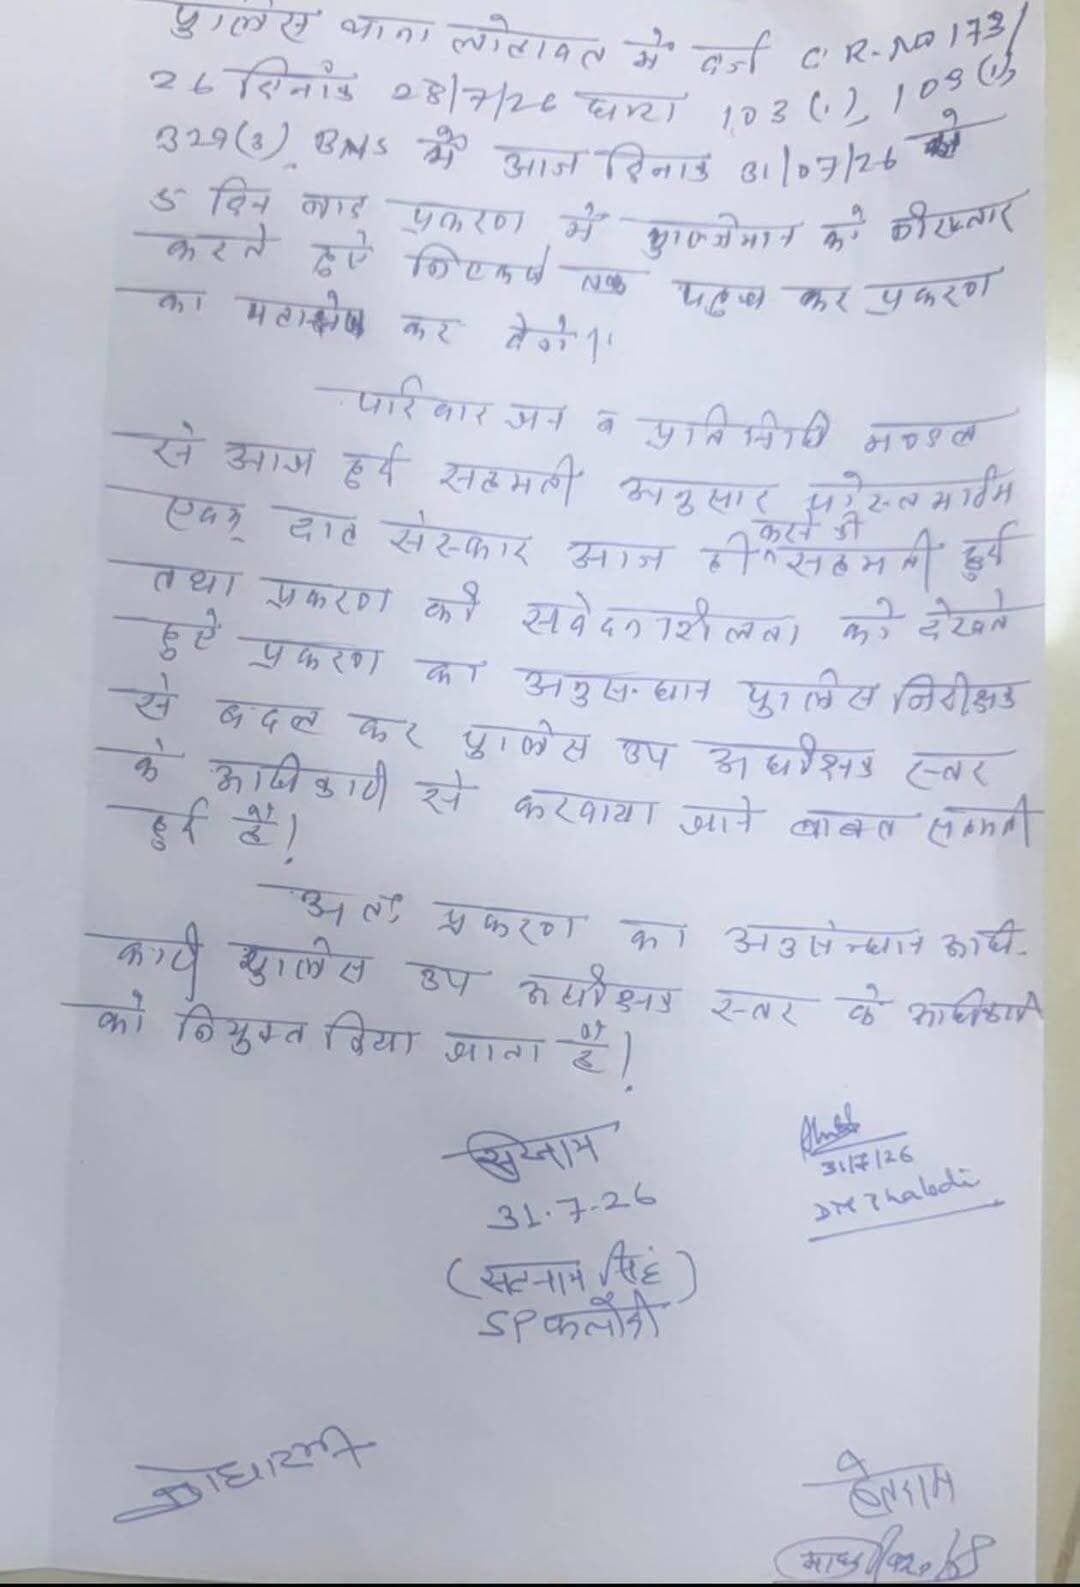 पुलिस थाना लोहावत में दर्ज C R-No 173/
26 दिनांक 28/7/26 धारा 103(1), 109(1),
329(3) BNS में आज दिनांक 31/07/26 से
5 दिन बाद प्रकरण में मुल्जिमान को गीरफ्तार
करते हुऐ निष्कर्ष तक पहुच कर प्रकरण
का कर देगें।
परिवार जन व प्रतिनिधि मण्डल
से आज हुई सहमती अनुसार पोस्टमार्टम
एवम् दाह संस्कार आज ही करने की सहमती हुई
तथा प्रकरण की सवेदनशीलता को देखते
हुऐ प्रकरण का अनुसन्धान पुलिस निरीक्षक
से बदल कर पुलिस उप अधीक्षक स्तर
के अधिकारी से करवाया जाने बाबत सहमती
हुई है!
अतः प्रकरण का अनुसन्धान अधि-
कारी पुलिस उप अधीक्षक स्तर के अधिकारी
को नियुक्त किया जाता है!
31/7/26
31.7.26
DM Phalodi
(सतनाम सिंह)
SP फलौदी